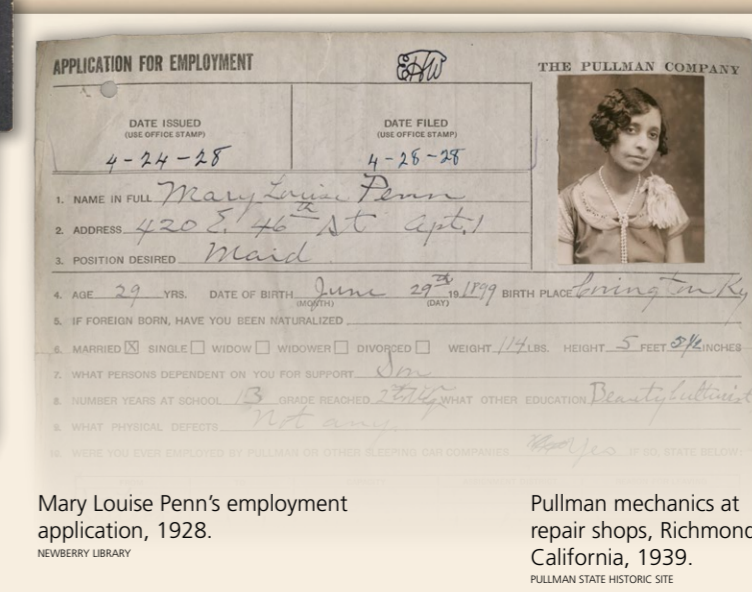 APPLICATION FOR EMPLOYMENT
EHW
THE PULLMAN COMPANY
DATE ISSUED
(USE OFFICE STAMP)
4-24-28
DATE FILED
(USE OFFICE STAMP)
4-28-28
1. NAME IN FULL Mary Louise Penn
2. ADDRESS 420 E. 46th St Apt. 1
3. POSITION DESIRED Maid
4. AGE 29 YRS. DATE OF BIRTH June 29th 1899 BIRTH PLACE Covington Ky
(MONTH) (DAY)
5. IF FOREIGN BORN, HAVE YOU BEEN NATURALIZED
6. MARRIED X SINGLE WIDOW WIDOWER DIVORCED WEIGHT 114 LBS. HEIGHT 5 FEET 5½ INCHES
7. WHAT PERSONS DEPENDENT ON YOU FOR SUPPORT Son
8. NUMBER YEARS AT SCHOOL 13 GRADE REACHED WHAT OTHER EDUCATION Beauty Culturist
9. WHAT PHYSICAL DEFECTS Not any
10. WERE YOU EVER EMPLOYED BY PULLMAN OR OTHER SLEEPING CAR COMPANIES Yes IF SO, STATE BELOW:
Mary Louise Penn's employment
application, 1928.
NEWBERRY LIBRARY
Pullman mechanics at
repair shops, Richmond
California, 1939.
PULLMAN STATE HISTORIC SITE